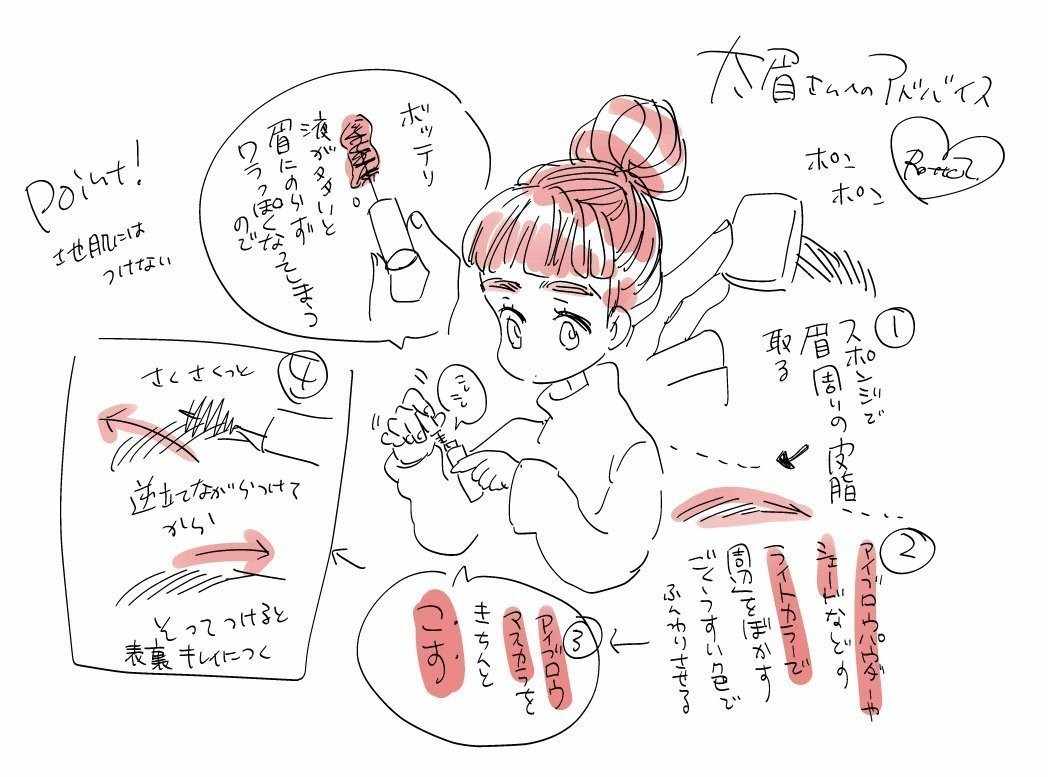 太眉さんへのアドバイス
ポン
ポン
①
スポンジで
眉周りの皮脂
取る
②
アイブロウパウダーや
シェードなどの
ライトカラーで
周辺をぼかす
ごくうすい色で
ふんわりさせる
③
アイブロウ
マスカラを
きちんと
こす
こし
こし
ボッテリ
液が多いと
眉にのらず
ワラっぽくなってしまう
ので
④
さくさくっと
逆立てながらつけて
から
そってつけると
表裏キレイにつく
Point!
地肌には
つけない